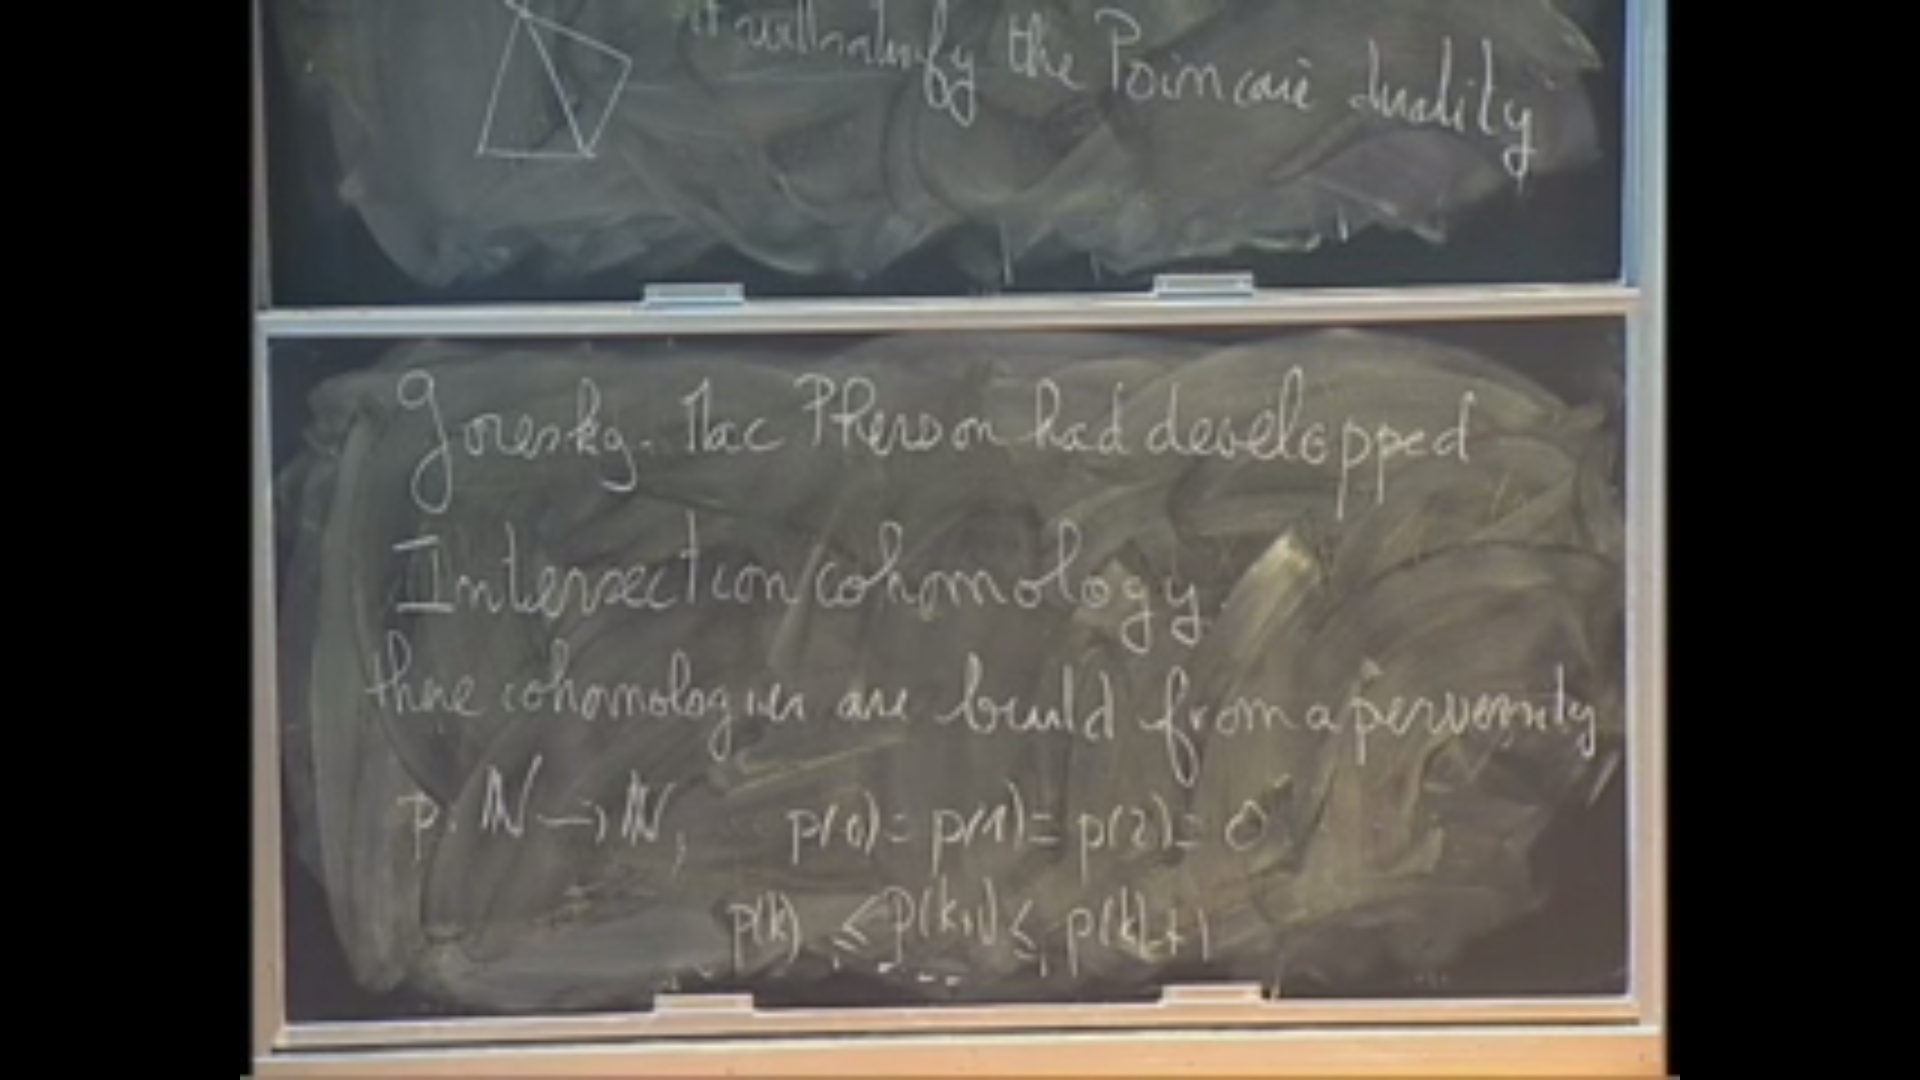 it will satisfy the Poincaré duality
Goresky-Mac Pherson had developped
Intersection cohomology.
these cohomologies are build from a perversity
p: ℕ → ℕ, p(0) = p(1) = p(2) = 0
p(k) ≤ p(k+1) ≤ p(k)+1